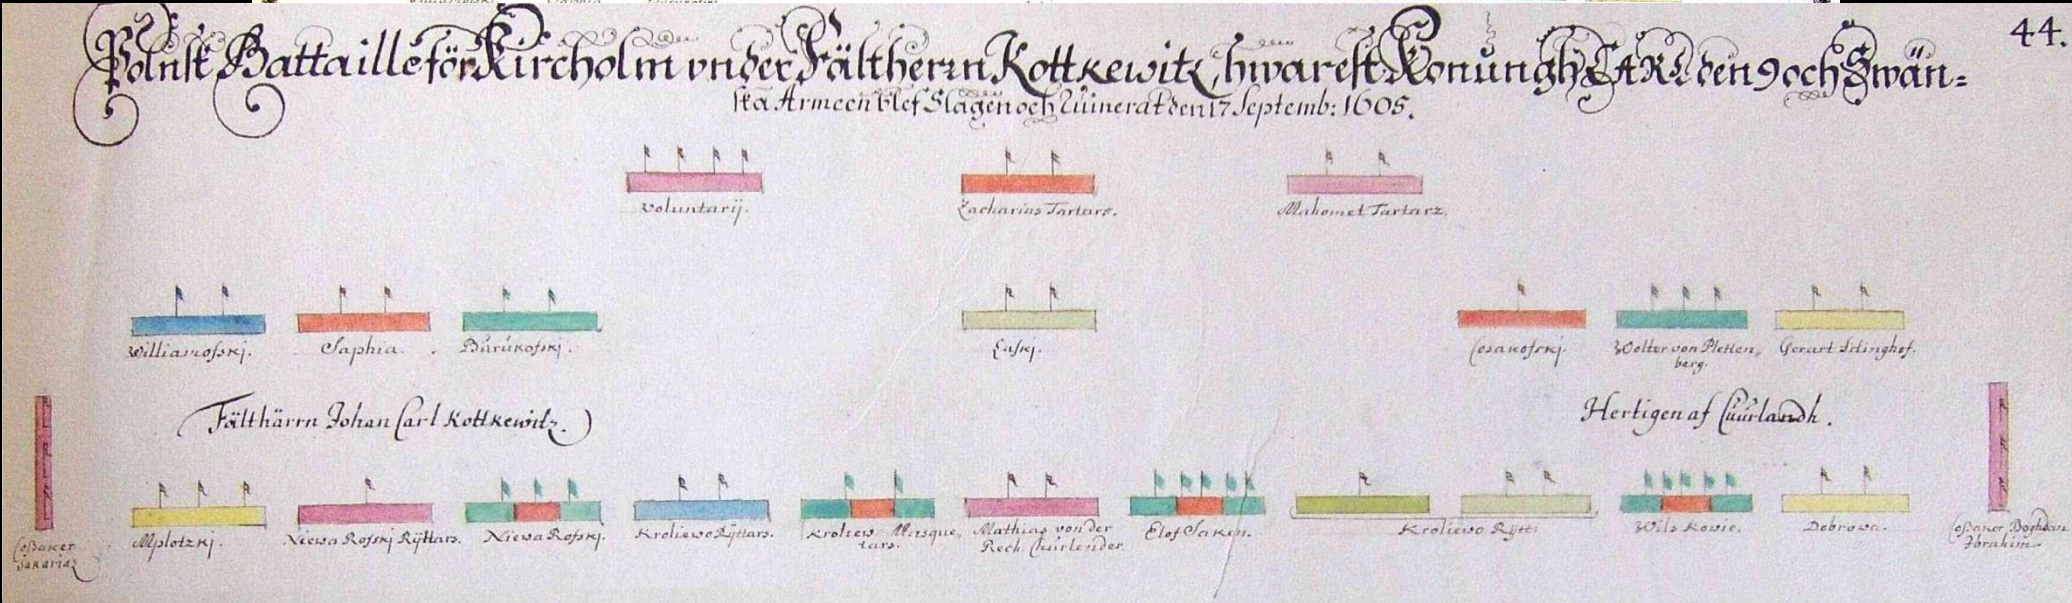 44.
Polnsk Battaille för Kircholm vnder Fältherrn Kottkewitz, hwarest Konungh CARL den 9 och Swän=
ska Armeen blef Slagen och Ruinerat den 17 Septemb: 1605.
Voluntarij. Zacharias Tartarz. Mahomet Tartarz.
Williamofskj. Saphia. Burukofskj. Laskj. Cosakofskj. Wolter von Pletten,,
berg. Gerart Idinghof.
Fälthärrn Johan Carl Kottkewitz. Hertigen af Cuurlandh.
Mplotzkj. Niewa Rofskj Rÿttars. Niewa Rofskj. Kroliewo Rÿttars. Kroliew Musque,,
tars. Mathias von der
Reck Churlender. Elof Saken. Kroliewo Rÿtt: Wils Kowie. Dobrowa.
Coßaker
Sakarias
Coßaker Boghdan
Ibrahim